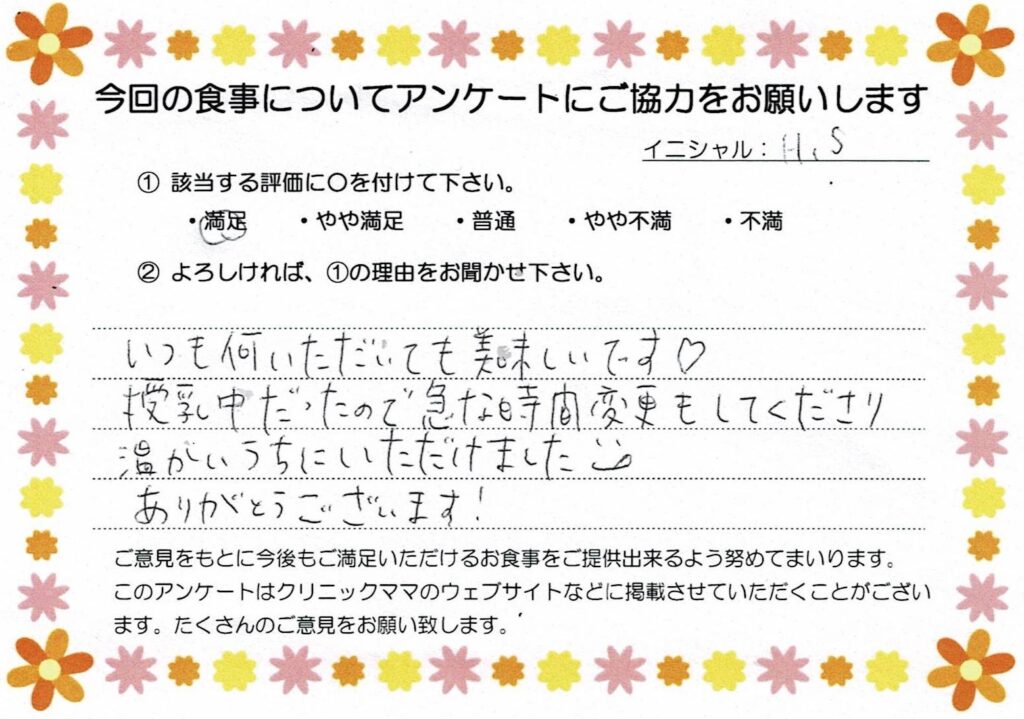 今回の食事についてアンケートにご協力をお願いします
イニシャル： H.S
① 該当する評価に〇を付けて下さい。
・満足 ・やや満足 ・普通 ・やや不満 ・不満
② よろしければ、①の理由をお聞かせ下さい。
いつも何いただいても美味しいです♡
授乳中だったので急な時間変更もしてくださり
温かいうちにいただけました
ありがとうございます!
ご意見をもとに今後もご満足いただけるお食事をご提供出来るよう努めてまいります。
このアンケートはクリニックママのウェブサイトなどに掲載させていただくことがござい
ます。たくさんのご意見をお願い致します。